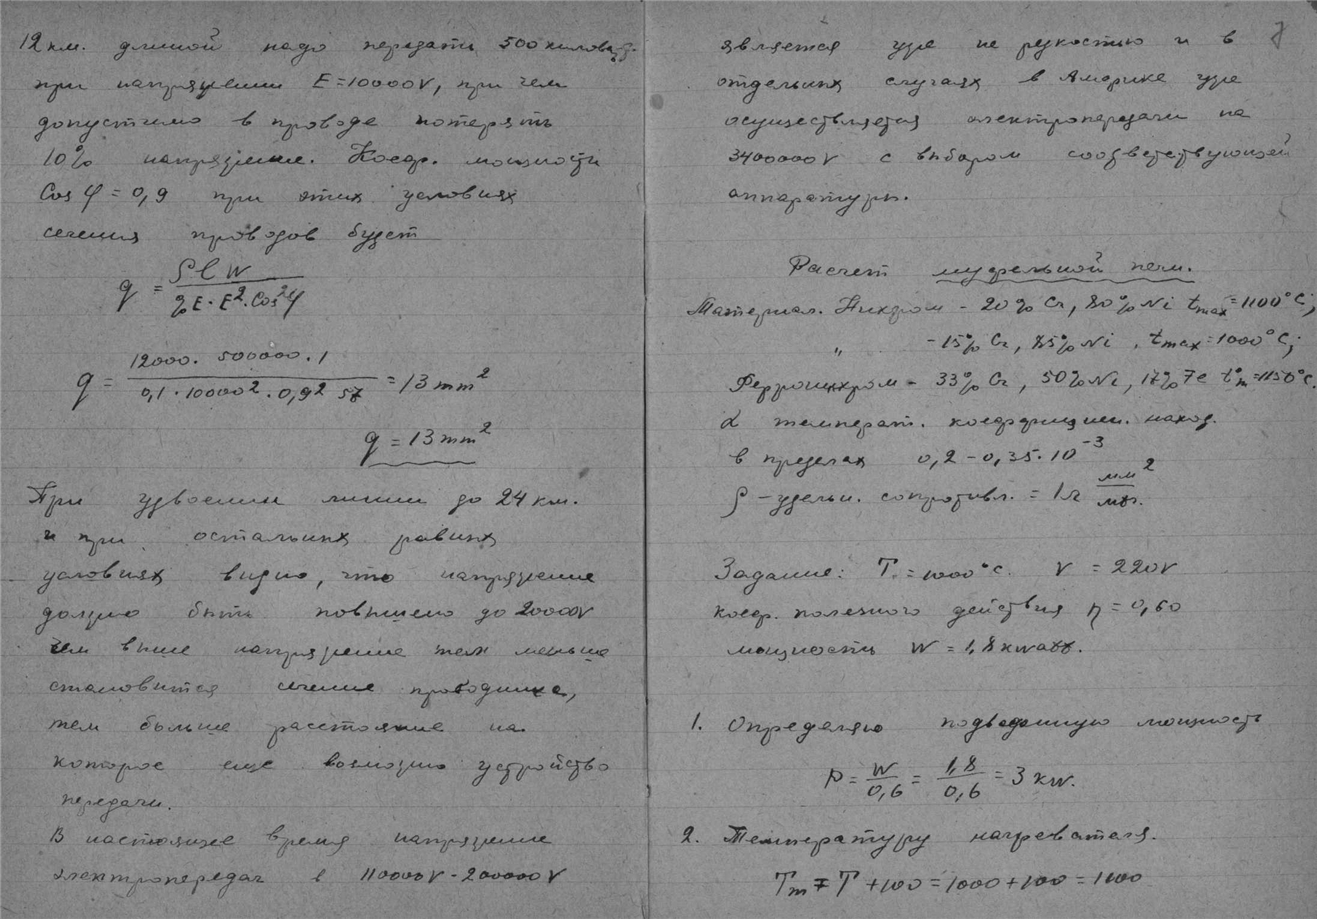 12 км. длиной надо передать 500 киловатт
при напряжении E=10000V, при чем
допустимо в проводе потерять
10% напряжение. Коеф. мощности
Cos φ = 0,9 при этих условиях
сечения проводов будет
q = ρ l W / %E · E² · Cos² φ
q = 12000 · 500000 · 1 / 0,1 · 10000² · 0,9² 57 = 13 mm²
q = 13 mm²
При удвоении линии до 24 км.
и при остальных равных
условиях видно, что напряжение
должно быть повышено до 20000V
Чем выше напряжение тем меньше
становится сечение проводника,
тем больше расстояние на
которое еще возможно устройство
передачи.
В настоящее время напряжение
электропередач в 110000V - 200000V
является уже не редкостью и в
отдельных случаях в Америке уже
осуществляется электропередачи на
3400000V с выбором соответствующей
аппаратуры.
Расчет муфельной печи.
Материал. Нихром - 20% Cr, 80% Ni tmax = 1100°C;
" - 15% Cr, 85% Ni, tmax = 1000°C;
Ферронихром - 33% Cr, 50% Ni, 17% Fe t°m = 1150°C.
α температ. коеффициен. наход.
в пределах 0,2 - 0,35 · 10⁻³
ρ - удельн. сопротивл. = 1 мм² / мт.
Задание: T = 1000°C. V = 220V
коеф. полезного действия η = 0,60
мощность W = 1,8 кwatt.
1. Определяю подведенную мощность
P = W / 0,6 = 1,8 / 0,6 = 3 kw.
2. Температуру нагревателя.
Tm = T + 100 = 1000 + 100 = 1100